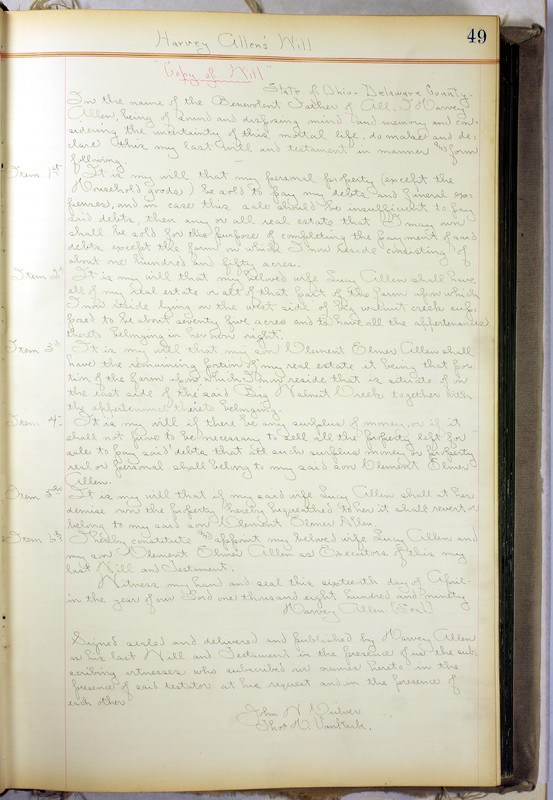 49
Harvey Allen's Will
"Copy of Will"
State of Ohio. Delaware County.
In the name of the Benevolent Father of All. I Harvey
Allen being of sound and disposing mind and memory and con-
sidering the uncertainty of this mortal life, do make and de-
clare this my last will and testament in manner and form
following.
Item 1st It is my will that my personal property (except the
Household goods) be sold to pay my debts and funeral ex-
penses, and in case this sale should be insufficient to pay
said debts, then any or all real estate that I may own
shall be sold for the purpose of completing the payment of said
debts except the farm on which I now reside consisting of
about one hundred and fifty acres.
Item 2d It is my will that my beloved wife Lucy Allen shall have
all of my real estate or all of that part of the farm upon which
I now reside lying on the west side of big walnut creek sup-
posed to be about seventy five acres and to have all the appertenances
thereto belonging in her own right.
Item 3d It is my will that my son Clement Elmer Allen shall
have the remaining portion of my real estate it being that por-
tion of the farm upon which I now reside that is situate of on
the east side of the said Big Walnut Creek together with
the appertenances thereto belonging.
Item 4th It is my will if there be any surplus of money, or if it
shall not prove to be necessary to sell all the property left for
sale to pay said debts that all such surplus money or property
real or personal shall belong to my said son Clement Elmer
Allen.
Item 5th It is my will that if my said wife Lucy Allen shall at her
demise own the property hereby bequeathed to her it shall revert or
belong to my said son Clement Elmer Allen.
Item I hereby constitute and appoint my beloved wife Lucy Allen and
my son Clement Elmer Allen as Executors of this my
last Will and Testament.
Witness my hand and seal this sixteenth day of April
in the year of our Lord one thousand eight hundred and ninety
Harvey Allen (Seal)
Signed sealed and delivered and published by Harvey Allen
as his last Will and Testament in the presence of us the sub-
scribing witnesses who subscribed our names hereto in the
presence of said testator at his request and in the presence of
each other
John N.
Thos H. VanKirk.